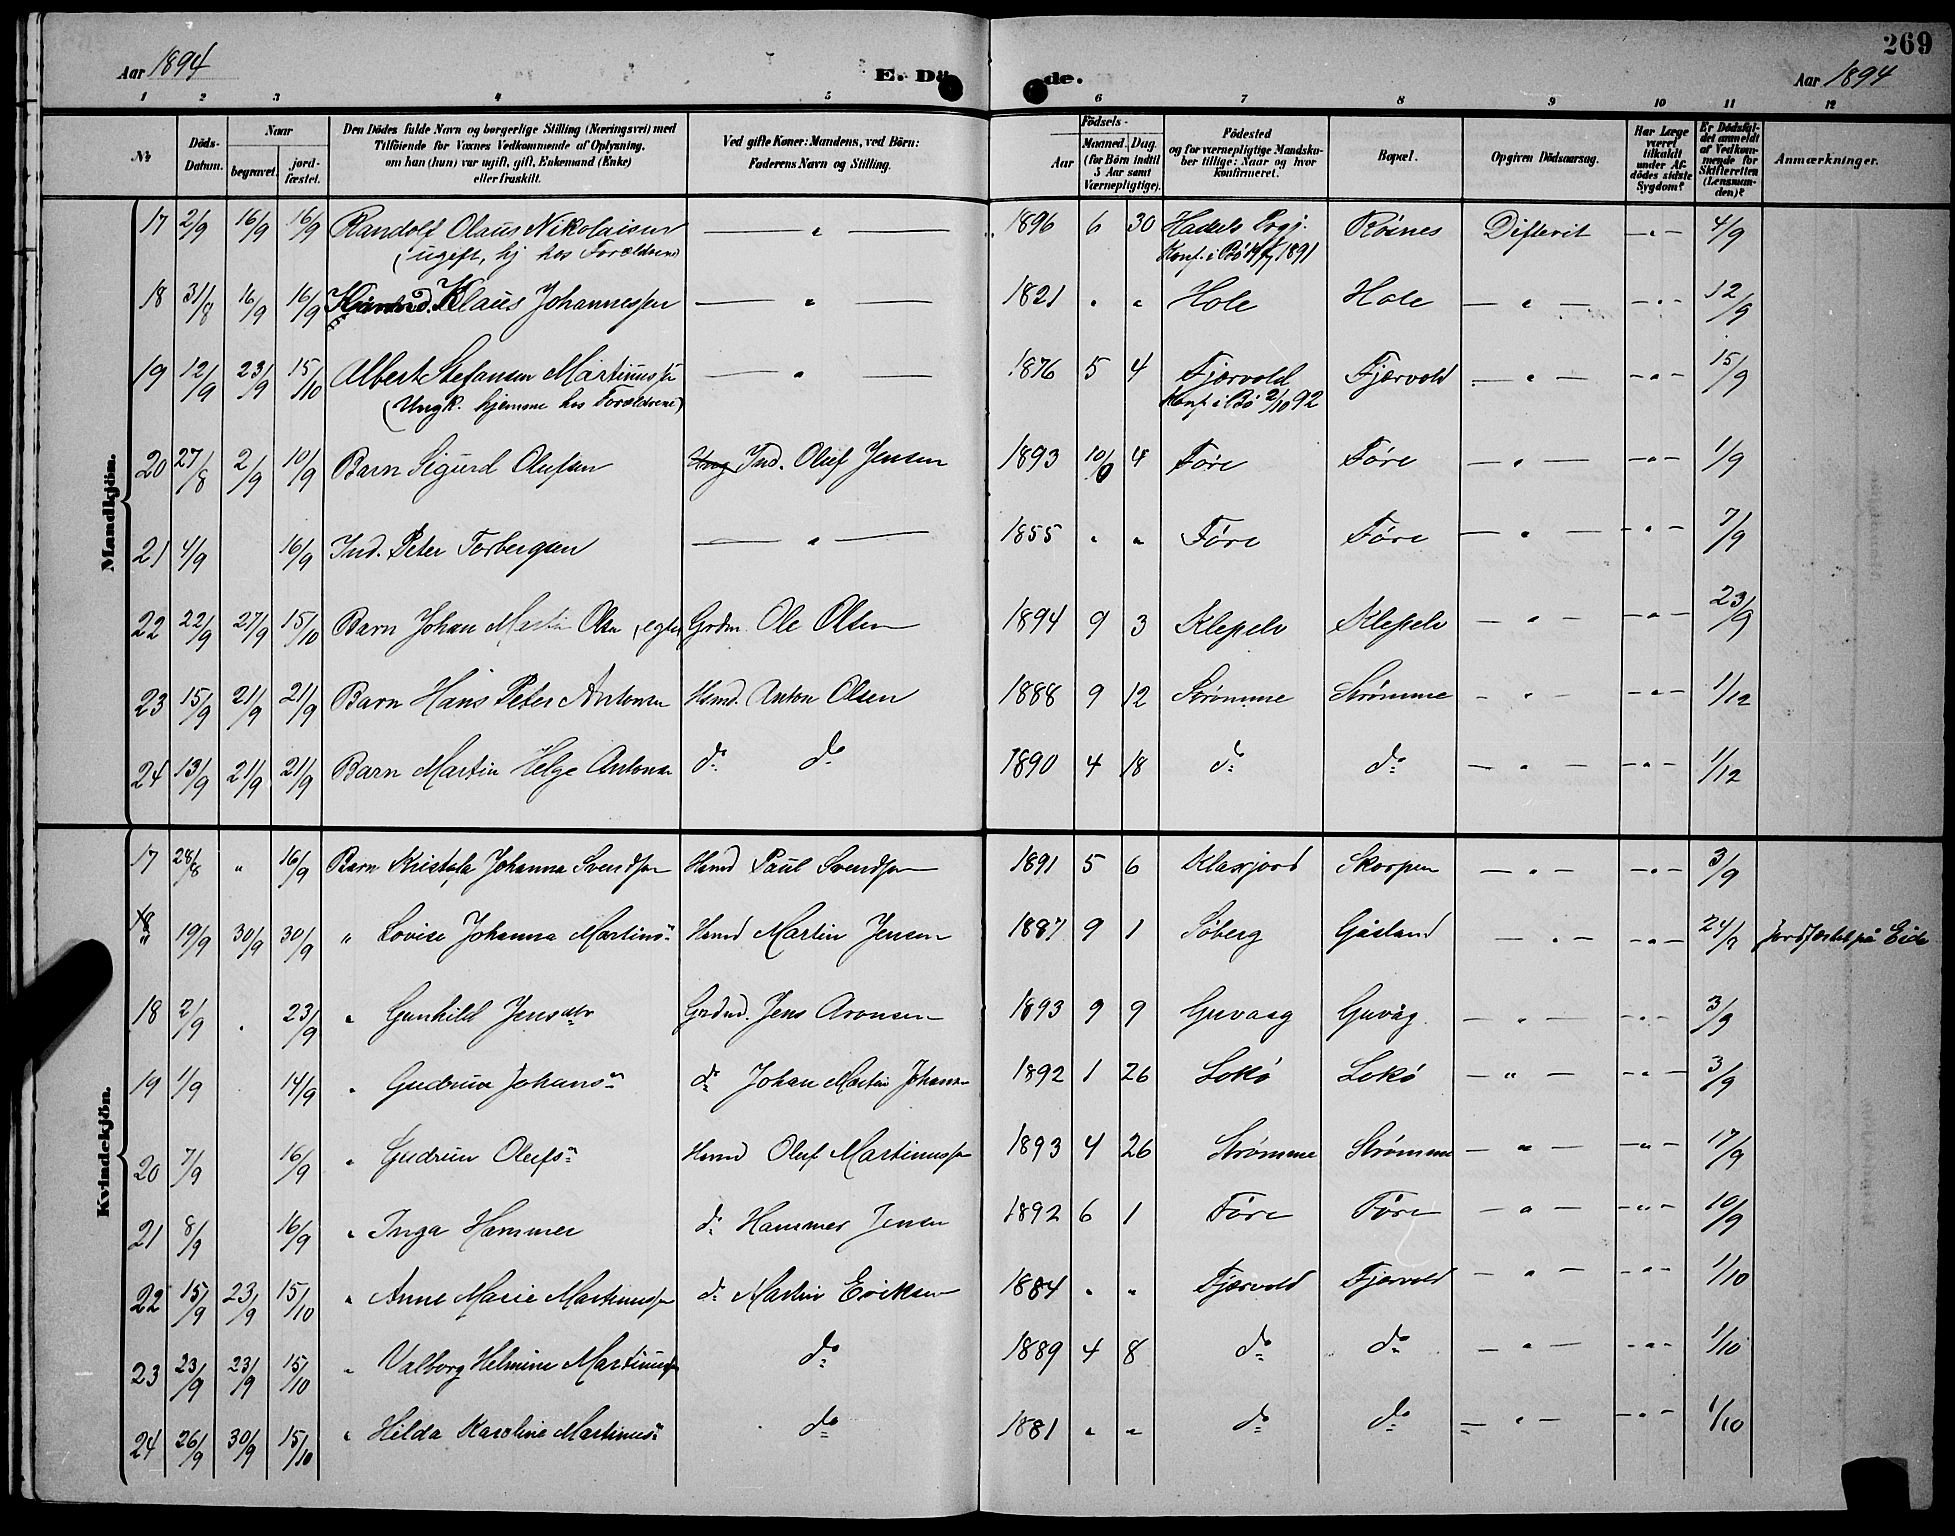 269
Aar 1894
E. Dö de.
Aar 1894
1 2 3 4 5 6 7 8 9 10 11 12
No
Döds-Datum.
Naar
begravet.
jord-fæstet.
Den Dödes fulde Navn og borgerlige Stilling (Næringsvei) med
Tilföiende for Voxnes Vedkommende af Oplysning,
om han (hun) var ugift, gift, Enkemand (Enke)
eller fraskilt.
Ved gifte Koner: Mandens, ved Börn:
Faderens Navn og Stilling.
Födsels-
Aar
Maaned. Dag.
(for Børn indtil
5 Aar samt
Værnepligtige).
Födested
og for værnepligtige Mandska-
ber tillige: Naar og hvor
konfirmeret.
Bopæl.
Opgiven Dödsaarsag.
Har Læge
været
tilkaldt
under Af-
dödes sidste
Sygdom?
Er Dödsfal-
det anmeldt
af Vedkom-
mende for
Skifteretten
(Lensman-
den)?
Anmærkninger.
Mandkjön.
17 2/9 16/9 16/9 Randolf Olaus Nikolaisen — " — 1896 6 30 Hadsels Prgj. Røsnes Difterit — " — 4/9
(ugift, hj hos Forældrene) Konf. i Bø 1891
18 31/8 16/9 16/9 Klaus Johannessen — " — 1821 " " Hole Hole — " — — " — 12/9
19 12/9 23/9 15/10 Albert Stefansen Martinuss — " — 1876 5 4 Fjærvold Fjærvold — " — — " — 15/9
(Ungk. hjemme hos Forældrene) Konf. i Bø 2/10 92
20 27/8 2/9 10/9 Barn Sigurd Olufsen Ind. Oluf Jensen 1893 10 4 Føre Føre — " — — " — 1/9
21 4/9 16/9 Ind. Peter Torbergsen — " — 1855 " " Føre Føre — " — — " — 7/9
22 22/9 27/9 15/10 Barn Johan Martin Olsen, egte Grdm. Ole Olsen 1894 9 3 Klepele Klepele — " — — " — 23/9
23 15/9 21/9 21/9 Barn Hans Peter Antonsen Hsmd. Anton Olsen 1888 9 12 Strømme Strømme — " — — " — 1/12
24 13/9 21/9 21/9 Barn Martin Helge Antonsen do do 1890 4 18 do do — " — — " — 1/12
Kvindekjön.
17 28/8 " 16/9 Barn Johanna Svendsen Hsmd Paul Svendsen 1891 5 6 Klaxjord Skorpen — " — — " — 3/9
" 19/9 30/9 30/9 " Lovise Johanna Martins Hsmd Martin Jensen 1887 9 1 Søberg Gåsland — " — — " — 24/9 Jordfæstet på Eide
18 2/9 " 23/9 " Gunhild Jensdtr Grdmd. Jens Aronsen 1893 9 9 Guvaag Guvåg — " — — " — 3/9
19 1/9 14/9 " Gudrun Johans do Johan Martin Johansen 1892 1 26 Lokø Lokø — " — — " — 3/9
20 7/9 16/9 " Gudrun Olufs Hsmd Oluf Martinussen 1893 4 26 Strømme Strømme — " — — " — 17/9
21 8/9 16/9 " Inga Hammer do Hammer Jensen 1892 6 1 Føre Føre — " — — " — 10/9
22 15/9 23/9 15/10 " Anne Marie Martinussen do Martin Eriksen 1884 " " Fjærvold Fjærvold — " — — " — 1/10
23 23/9 23/9 15/10 " Valborg Helmine Martinussen do 1889 4 8 do do — " — — " — 1/10
24 26/9 30/9 15/10 " Hilda Karoline Martinus do 1881 " " do do — " — — " — 1/10